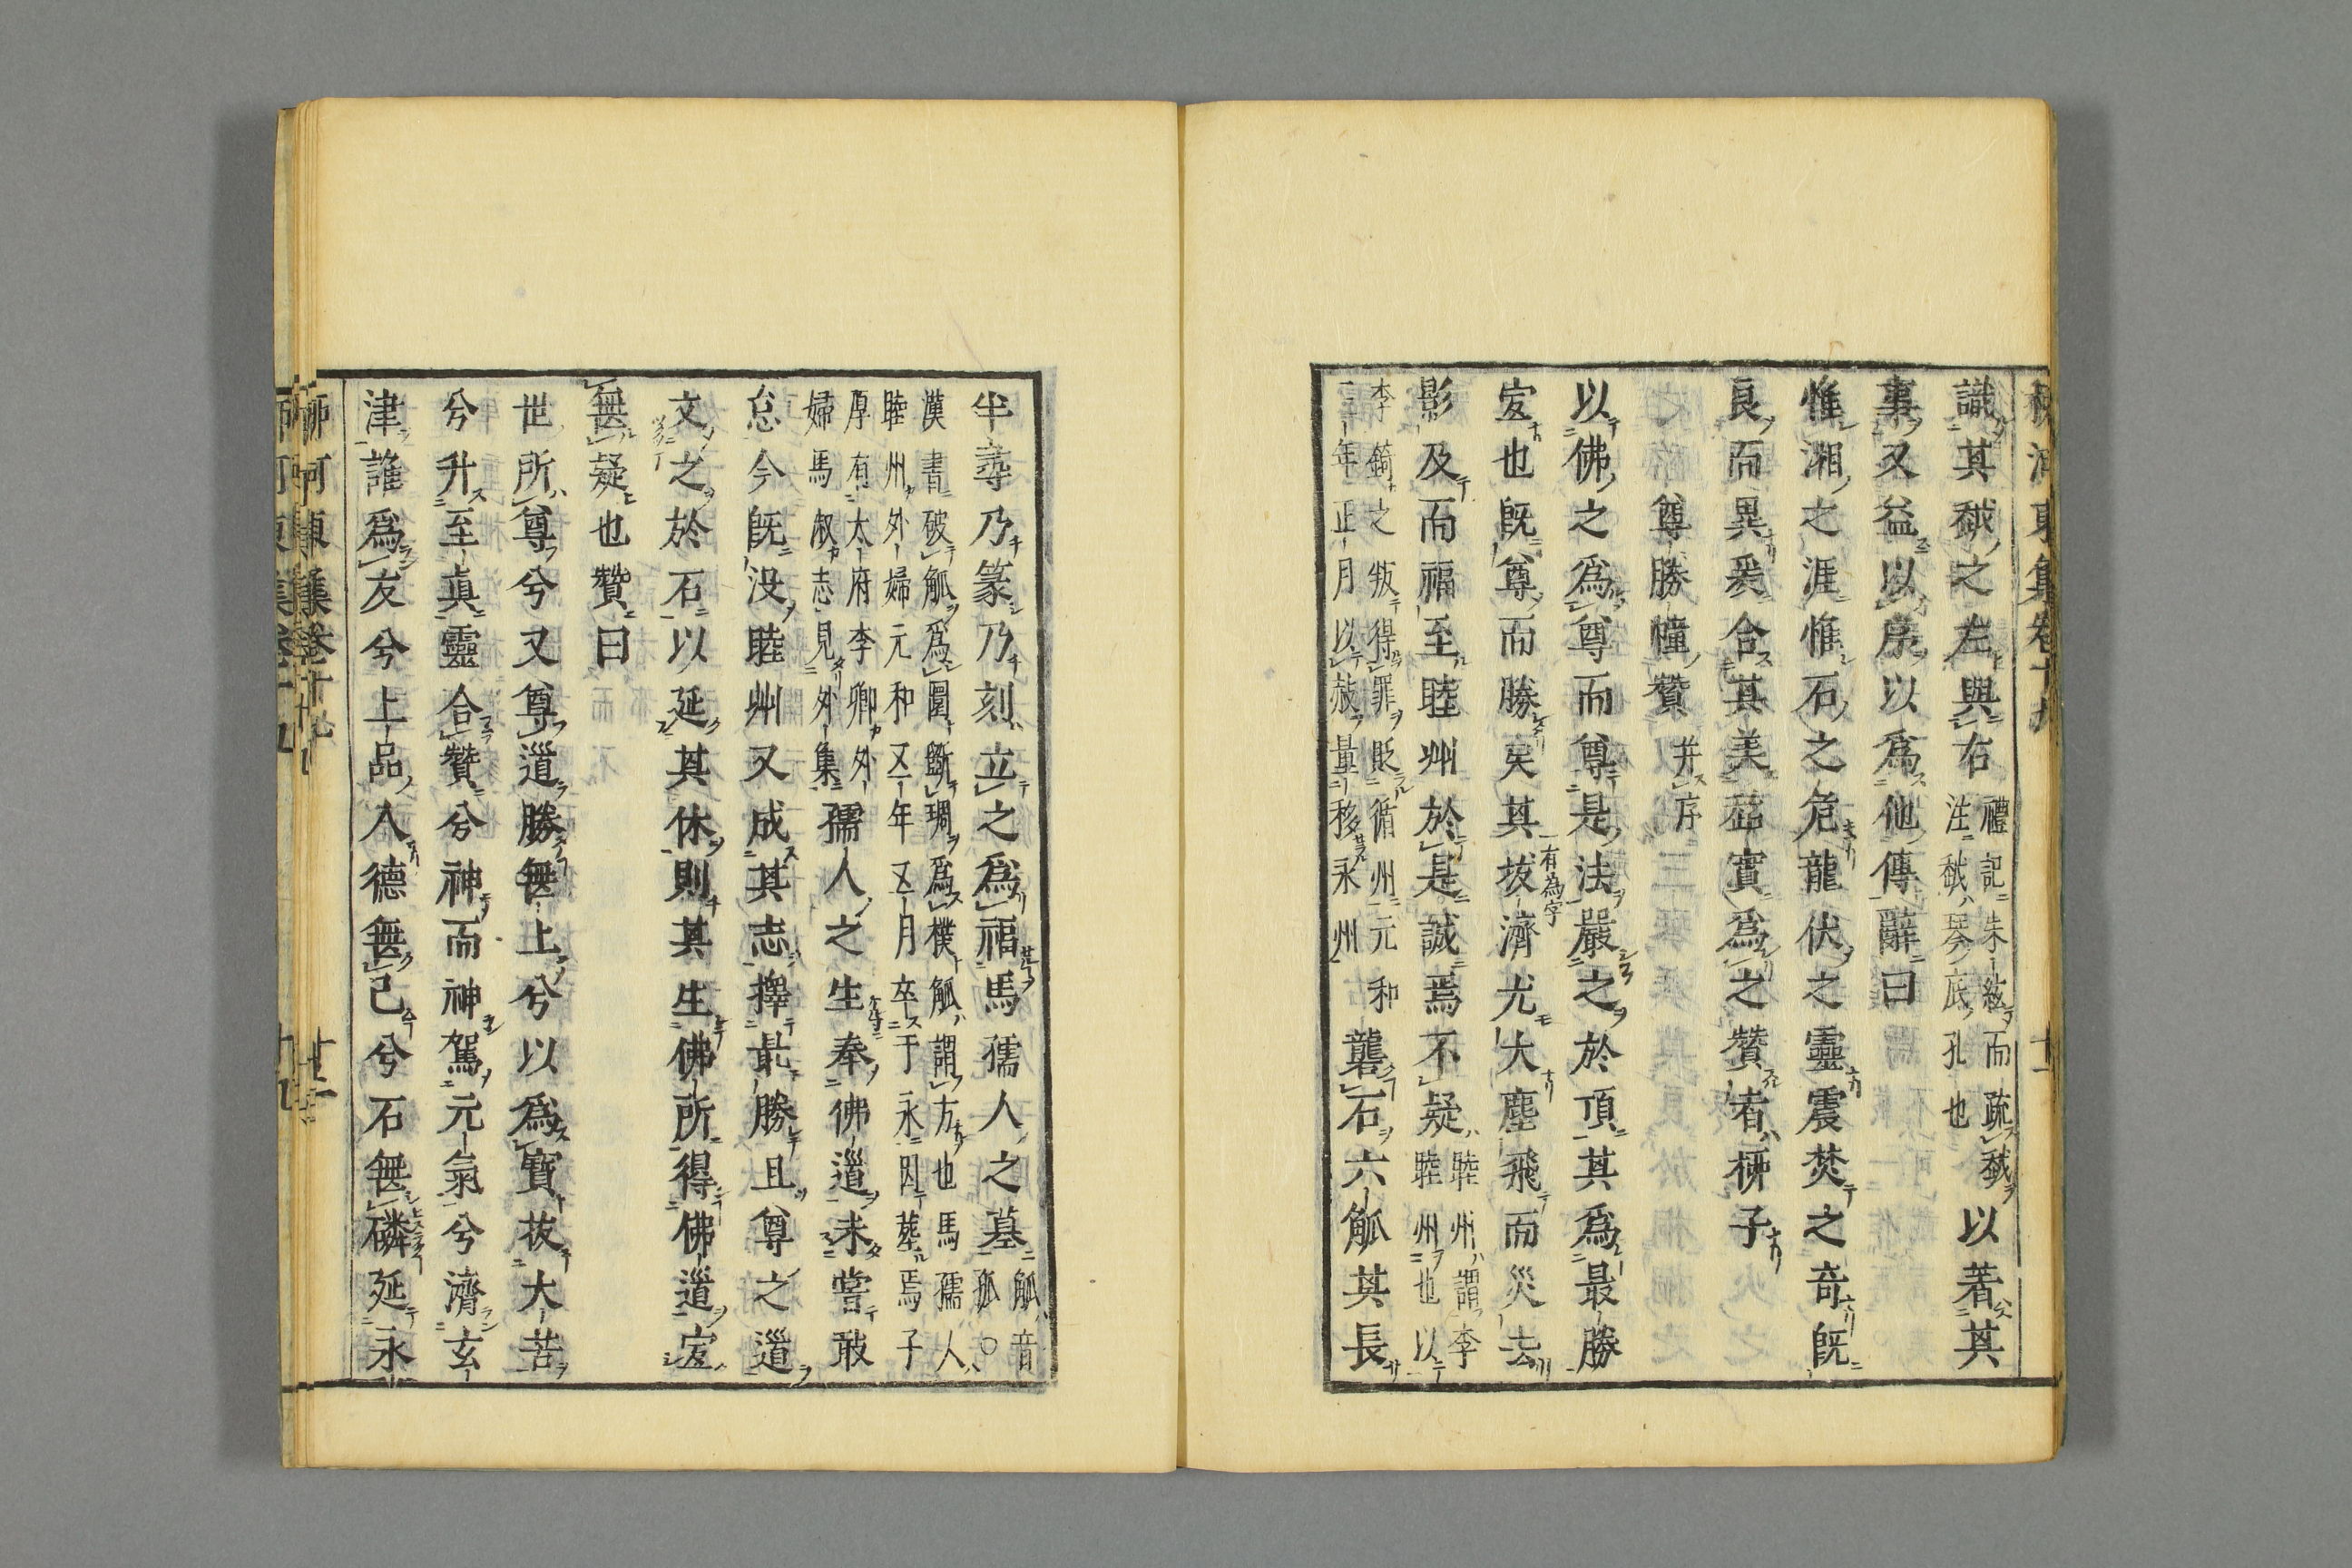 柳河東集卷十九 十一
識其䤋之左與右 禮記朱絃而疏越 注越琴底孔也 以著其
事又益以序以爲他傳辭曰
惟湘之涯惟石之危龍伏之靈震焚之奇既
良而異爰合其美茲實爲之贊者柳子
尊勝幢贊 并序
以佛之爲尊而尊是法嚴之於頂其爲最勝
宜也既尊而勝矣其拔濟尤大塵飛而災去
有爲字
影及而福至睦州於是誠焉不疑 睦州謂李 睦州也以
李錡之叛得罪貶循州元和 三年正月以赦量移永州 礱石六觚其長
半尋乃篆乃刻立之爲福馬孺人之墓 觚音 孤○
漢書破觚爲圜斲琱爲樸觚謂方也馬孺人
睦州外婦元和五年五月卒于永因葬焉子
厚有太府李卿外
婦馬淑志見外集 孺人之生奉佛道未嘗敢
怠今既没睦州又成其志擇最勝且尊之道
文之於石以延其休則其生佛所得佛道宜
無疑也贊曰
世所尊兮又尊道勝無上兮以爲寶拔大苦
兮升至眞靈合贊兮神而神駕元氣兮濟玄
津誰爲友兮上品人德無已兮石無磷延永
柳河東集卷十九 十二